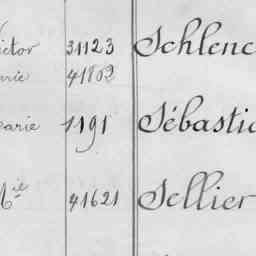 ictor 31123 Schlenc
arie 41802
arie 1191 Sébastic
Mie 41621 Sellier